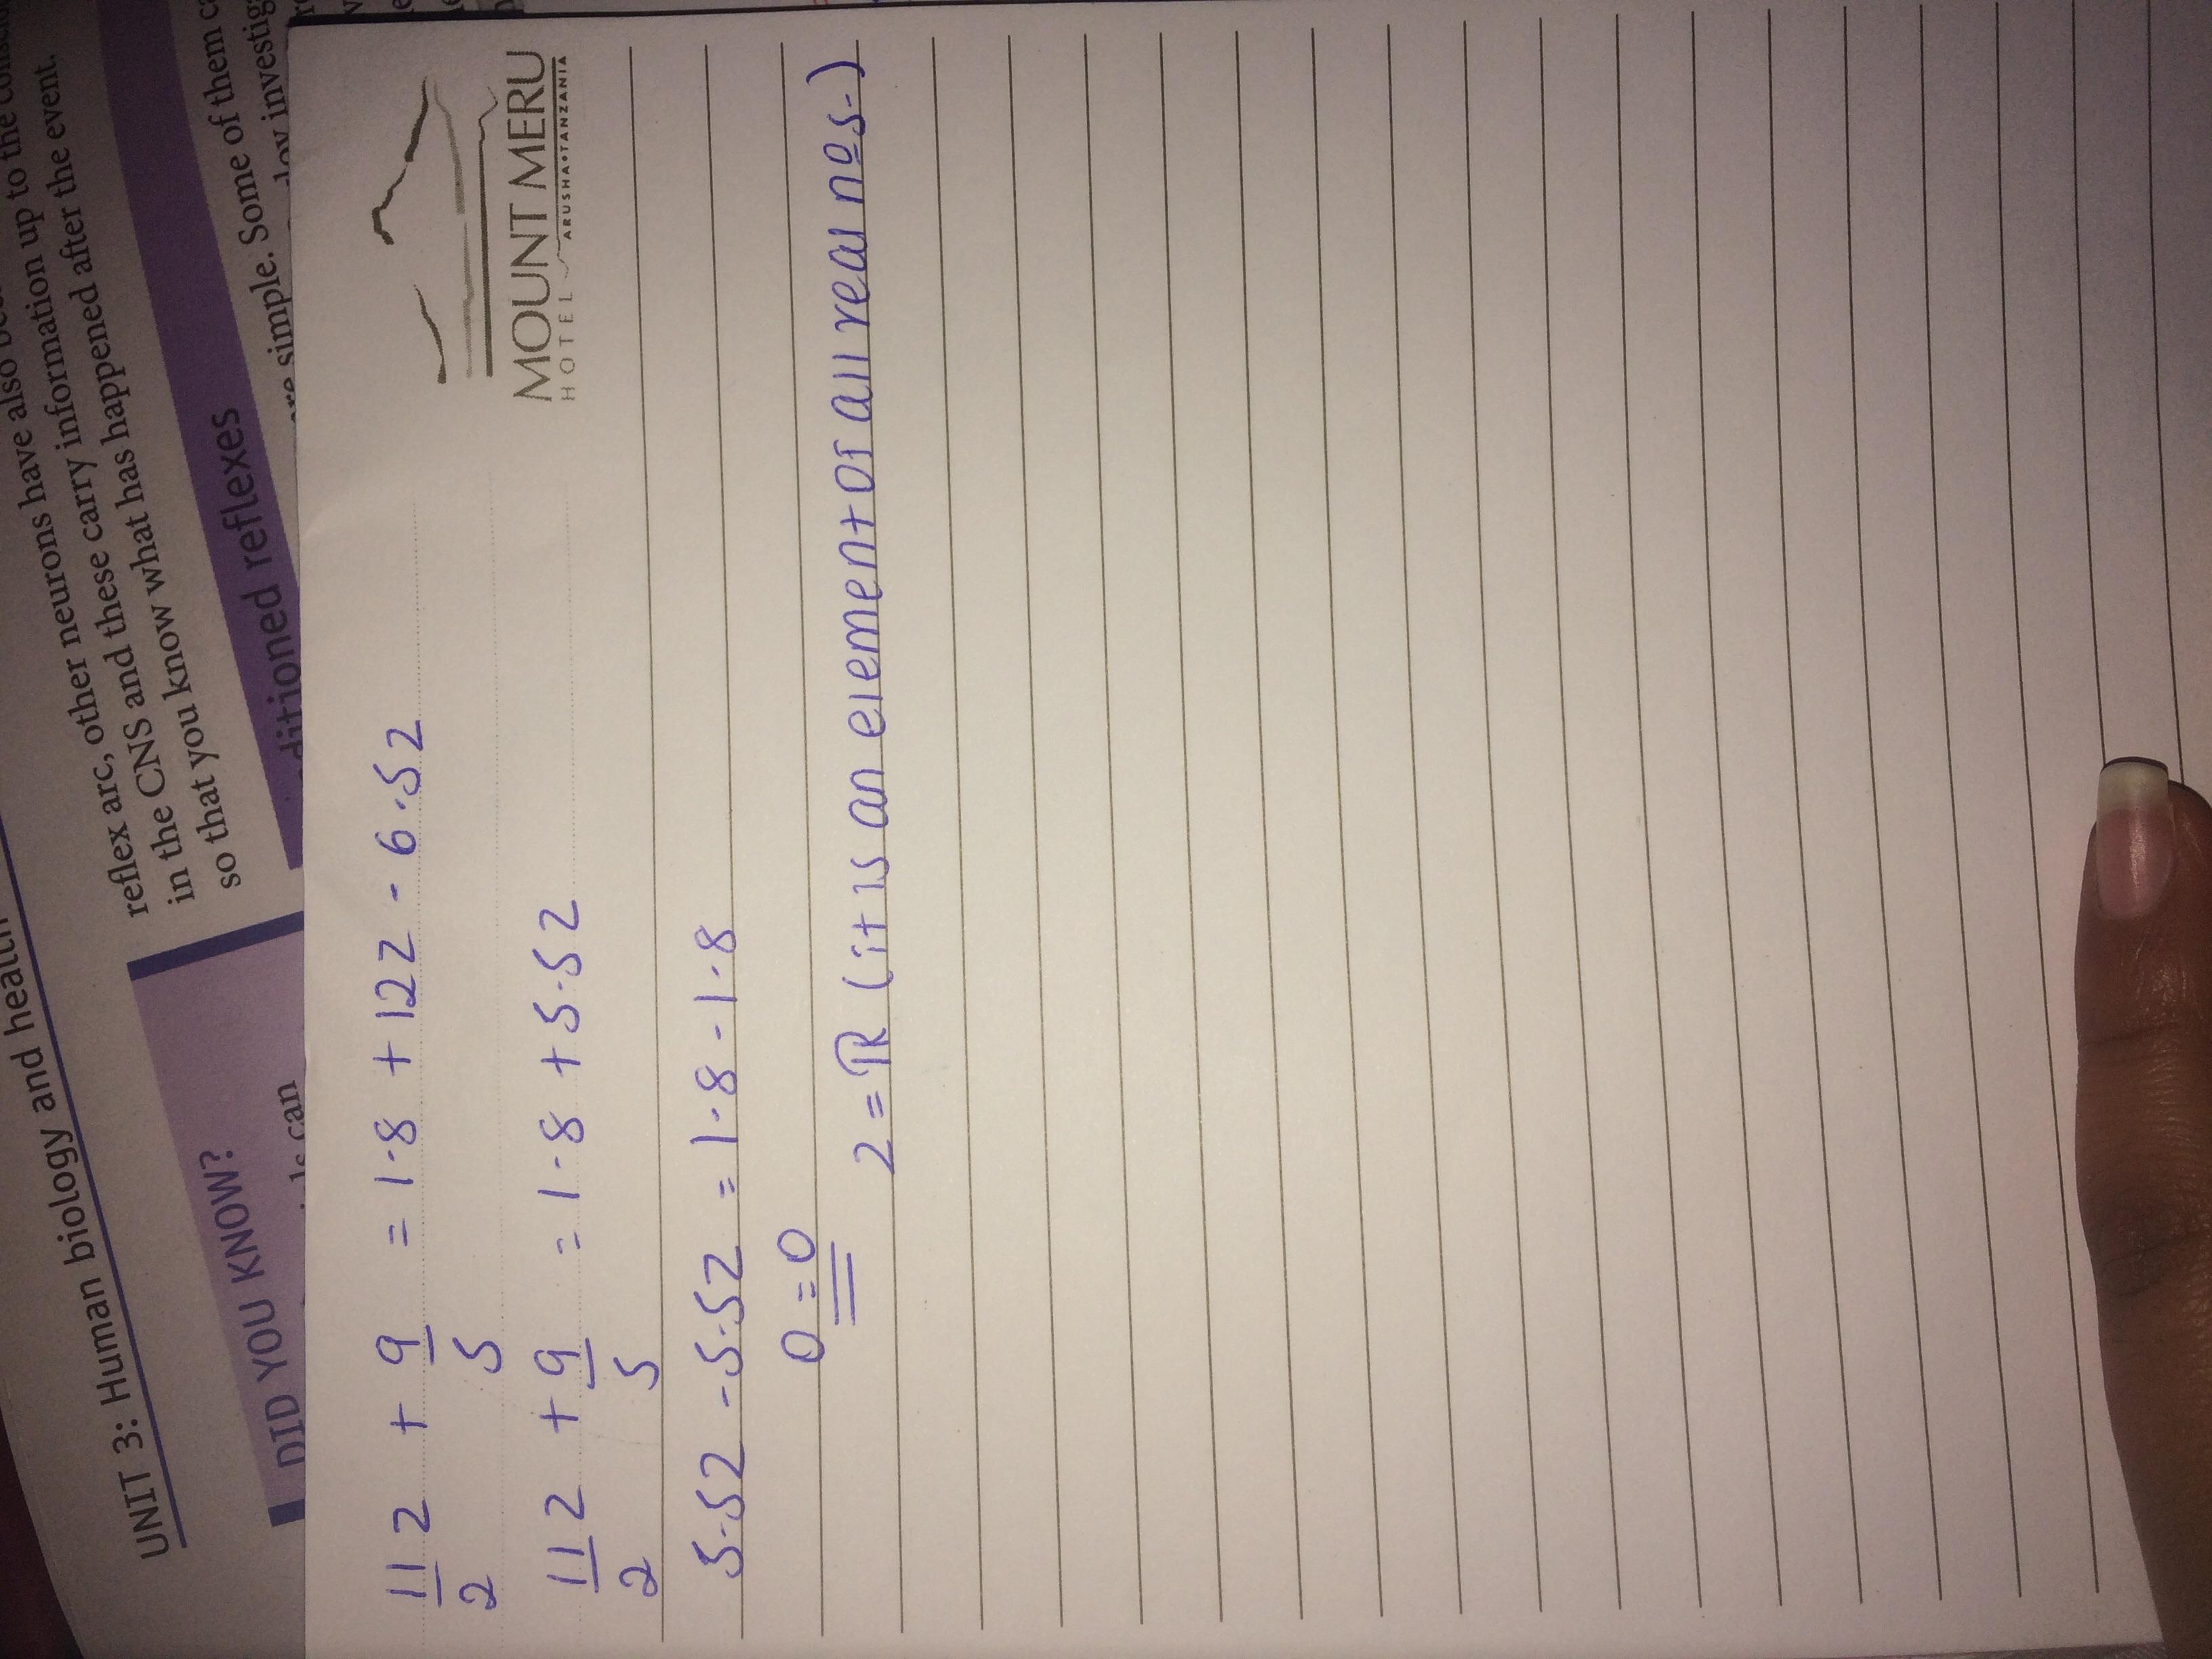 UNIT 3: Human biology and health
DID YOU KNOW?
ls can
reflex arc, other neurons have also
in the CNS and these carry information up to the
so that you know what has happened after the event.
ditioned reflexes
are simple. Some of them
day investig
MOUNT MERU
HOTEL ARUSHA•TANZANIA
11/2 z + 9/5 = 1.8 + 12z - 6.5z
11/2 z + 9/5 = 1.8 + 5.5z
5.5z - 5.5z = 1.8 - 1.8
0 = 0
z = ℝ (it is an element of all real nos.)